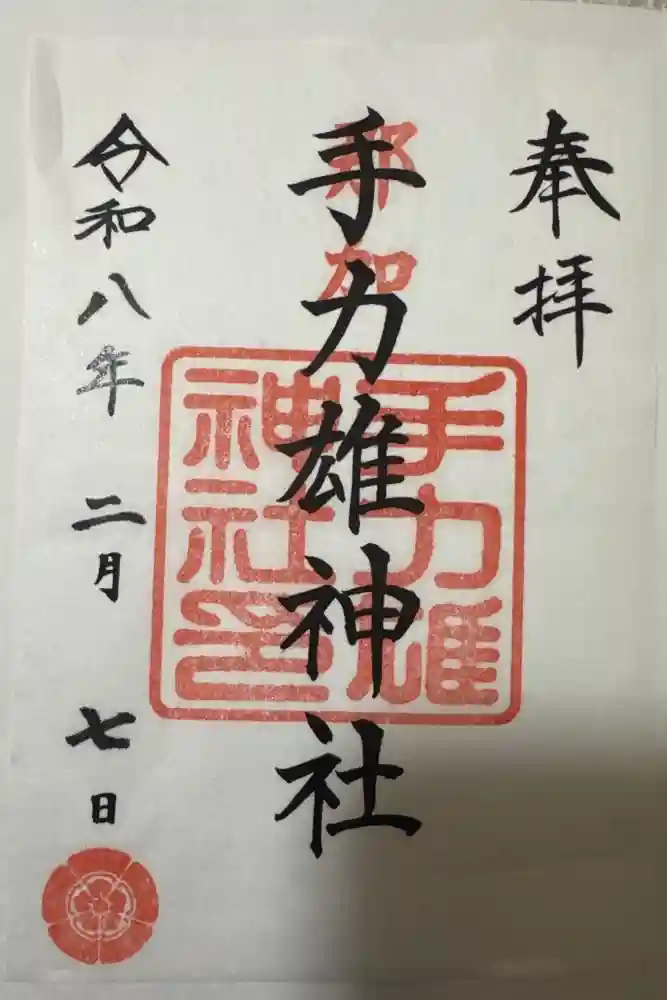 奉拝
那加
手力雄神社
手力雄
神社印
令和八年 二月 七日